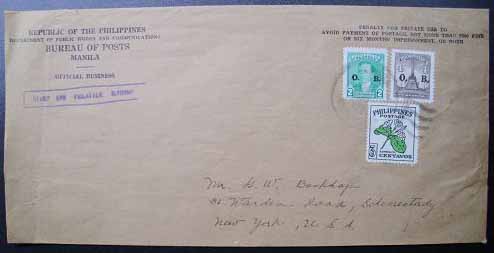 REPUBLIC OF THE PHILIPPINES
DEPARTMENT OF PUBLIC WORKS AND COMMUNICATIONS
BUREAU OF POSTS
MANILA
OFFICIAL BUSINESS
STAMP AND PHILATELIC DIVISION
PENALTY FOR PRIVATE USE TO
AVOID PAYMENT OF POSTAGE, NOT MORE THAN P50 FINE
OR SIX MONTHS IMPRISONMENT, OR BOTH
O. B.
2 2
O. B.
PHILIPPINES
POSTAGE
CENTAVOS
Mr. G. W.
Road,
New York, U S A